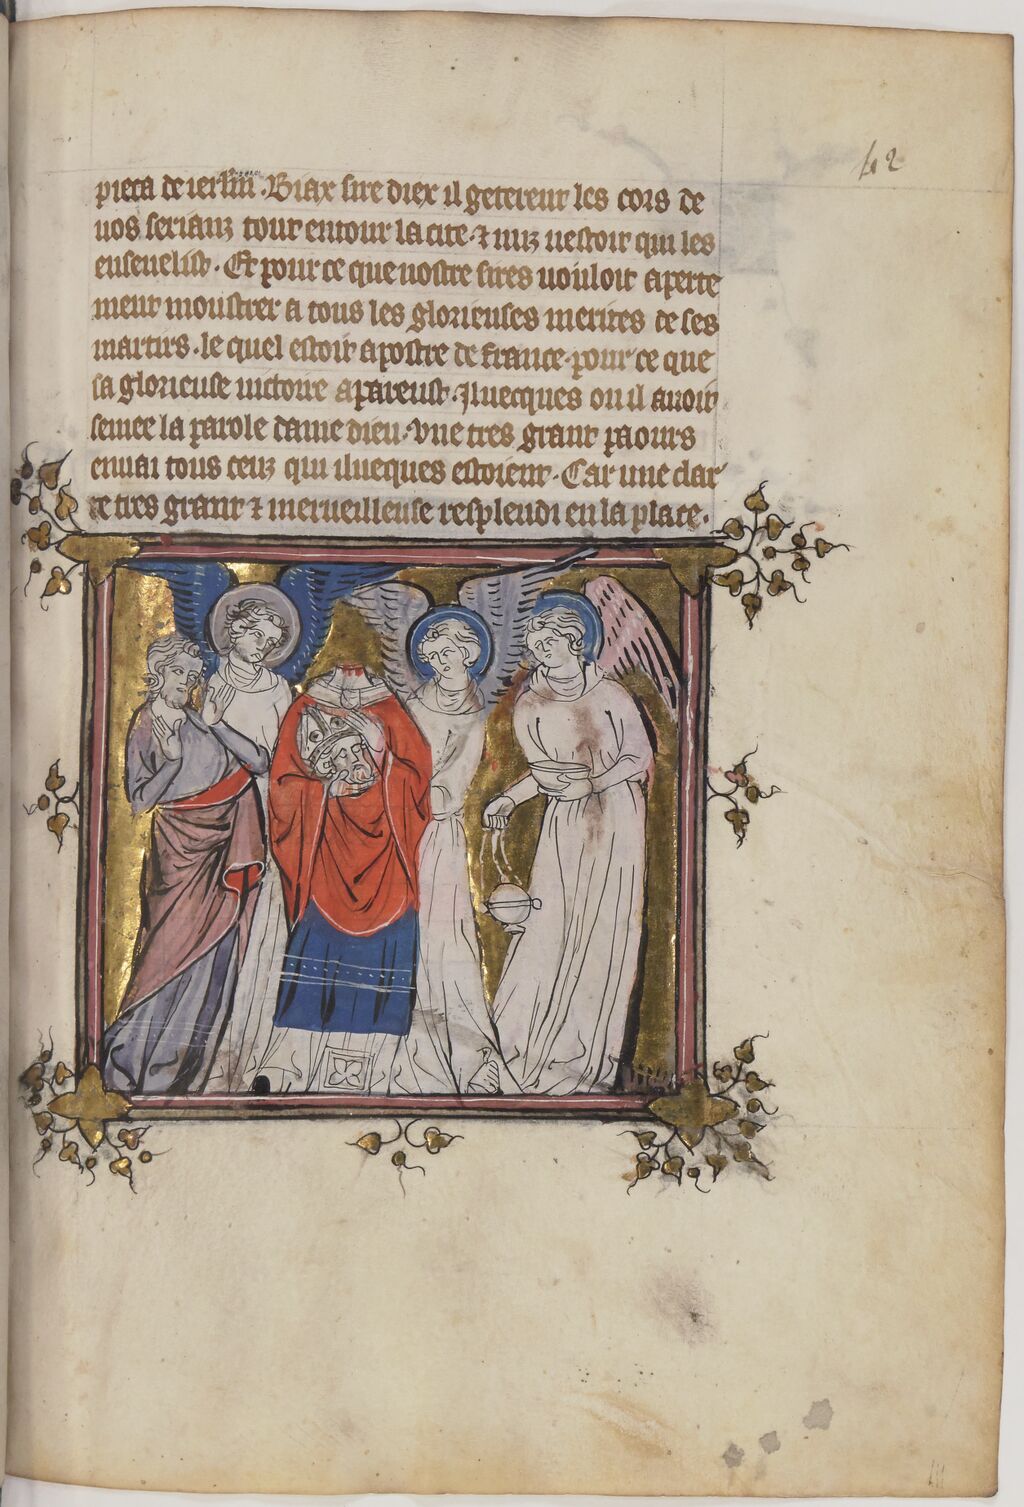 42
pieca de ierl'm. Biax sire diex il geterent les cors de
vos serianz tout entour la cite. ⁊ nuz nestoit qui les
enseuelist. Et pour ce que nostre sires vouloit aperte
ment moustrer a tous les glorieuses merites de ses
martirs. le quel estoit apostre de france. pour ce que
sa glorieuse uictoire apareust. Iluecques ou il auoit
semee la parole dame dieu. vne tres grant paours
enuai tous ceuz qui ilueques estoient. Car une clar
te tres grant ⁊ merueilleuse resplendi en la place.